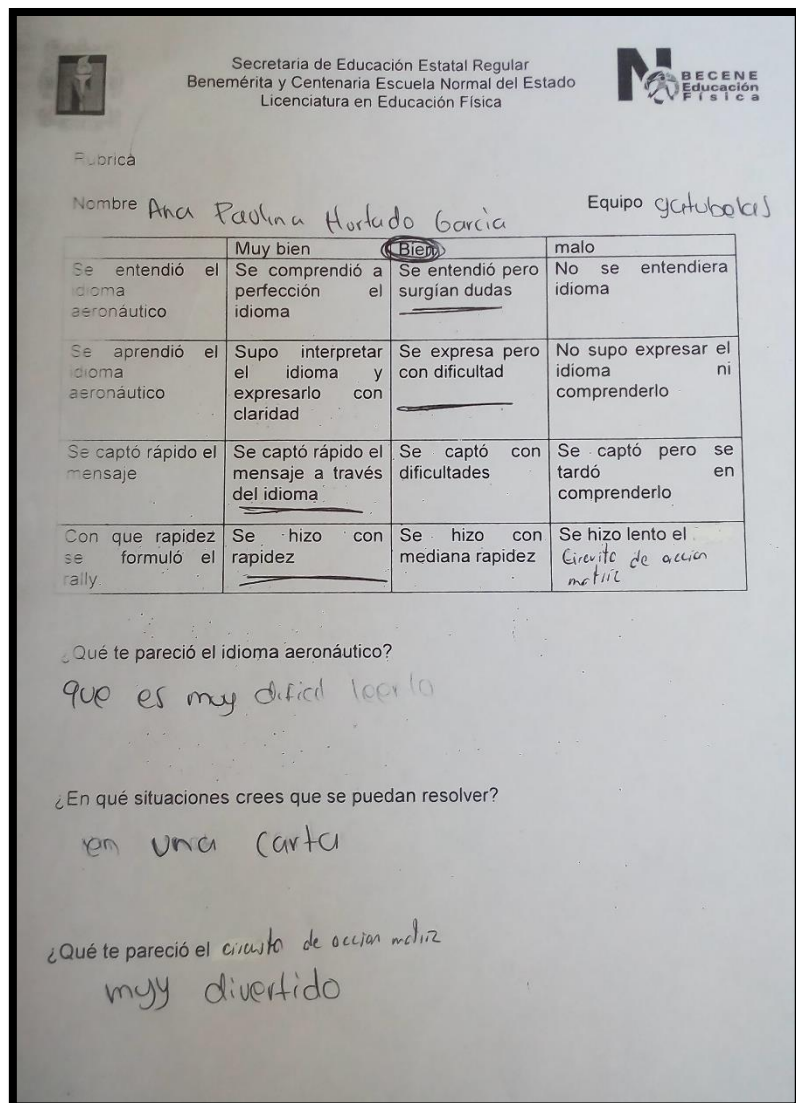 Secretaria de Educación Estatal Regular
Benemérita y Centenaria Escuela Normal del Estado
Licenciatura en Educación Física
BECENE
Educación
Física
Rubrica
Nombre Ana Paulina Hurtado Garcia Equipo gatubelas
Muy bien Bien malo
Se entendió el idioma aeronáutico
Se comprendió a perfección el idioma
Se entendió pero surgían dudas
No se entendiera idioma
Se aprendió el idioma aeronáutico
Supo interpretar el idioma y expresarlo con claridad
Se expresa pero con dificultad
No supo expresar el idioma ni comprenderlo
Se captó rápido el mensaje
Se captó rápido el mensaje a través del idioma
Se captó con dificultades
Se captó pero se tardó en comprenderlo
Con que rapidez se formuló el rally.
Se hizo con rapidez
Se hizo con mediana rapidez
Se hizo lento el Circuito de accion motriz
¿Qué te pareció el idioma aeronáutico?
que es muy dificil leerlo
¿En qué situaciones crees que se puedan resolver?
en una carta
¿Qué te pareció el circuito de accion motriz
muy divertido